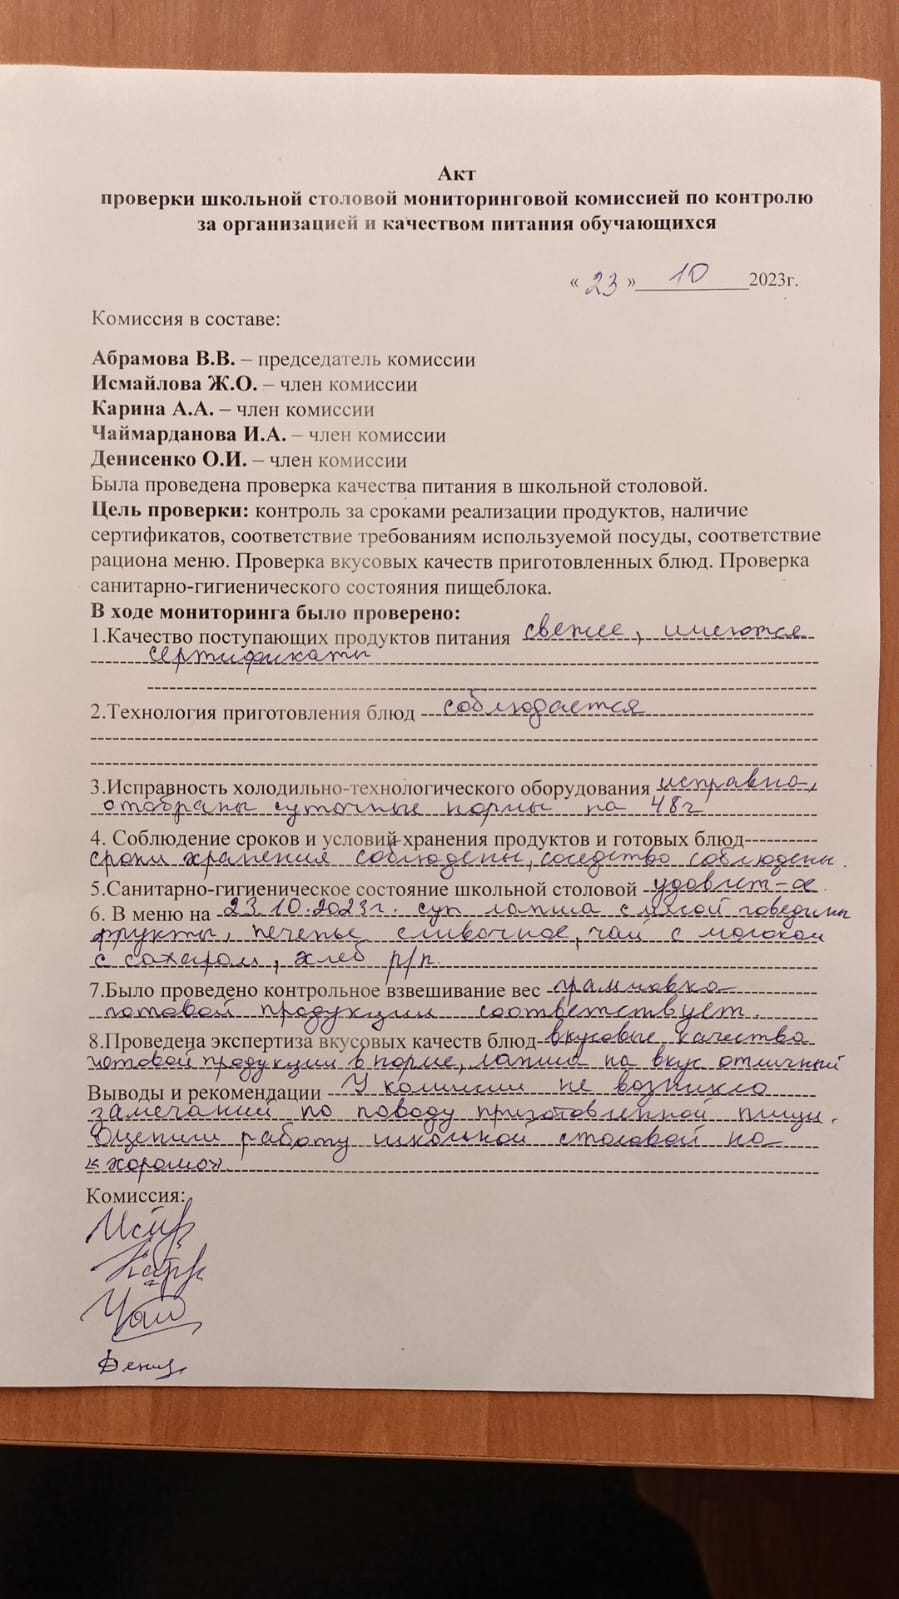 Акт
проверки школьной столовой мониторинговой комиссией по контролю
за организацией и качеством питания обучающихся
« 23 » 10 2023г.
Комиссия в составе:
Абрамова В.В. – председатель комиссии
Исмайлова Ж.О. – член комиссии
Карина А.А. – член комиссии
Чаймарданова И.А. – член комиссии
Денисенко О.И. – член комиссии
Была проведена проверка качества питания в школьной столовой.
Цель проверки: контроль за сроками реализации продуктов, наличие
сертификатов, соответствие требованиям используемой посуды, соответствие
рациона меню. Проверка вкусовых качеств приготовленных блюд. Проверка
санитарно-гигиенического состояния пищеблока.
В ходе мониторинга было проверено:
1.Качество поступающих продуктов питания свежее, имеются
сертификаты
2.Технология приготовления блюд соблюдается
3.Исправность холодильно-технологического оборудования исправно,
отобраны суточные нормы на 48ч
4. Соблюдение сроков и условий хранения продуктов и готовых блюд
сроки хранения соблюдены, соседство соблюдены.
5.Санитарно-гигиеническое состояние школьной столовой удовлет-ое.
6. В меню на 23.10.2023г. суп лапша с мясом говядины
фрукты, печенье сливочное, чай с молоком
с сахаром, хлеб р/п.
7.Было проведено контрольное взвешивание вес граммовка
готовой продукции соответствует.
8.Проведена экспертиза вкусовых качеств блюд вкусовые качества
готовой продукции в норме, лапша на вкус отличный
Выводы и рекомендации У комиссии не возникло
замечаний по поводу приготовленной пищи.
Оценили работу школьной столовой на
«хорошо».
Комиссия: